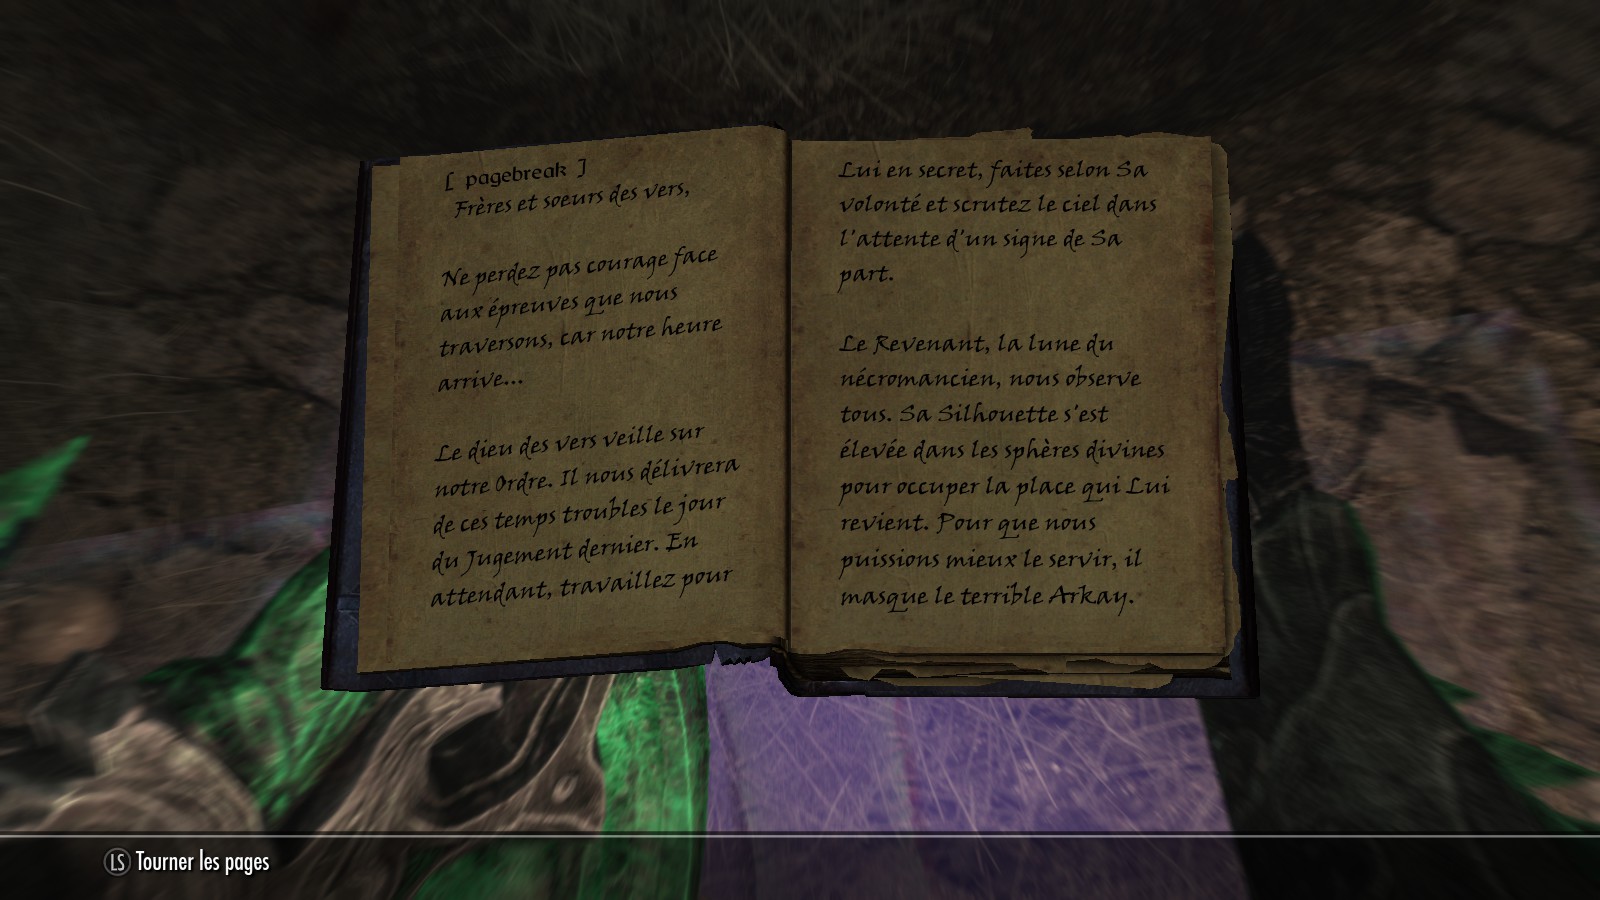 [ pagebreak ]
Frères et soeurs des vers,
Ne perdez pas courage face
aux épreuves que nous
traversons, car notre heure
arrive...
Le dieu des vers veille sur
notre Ordre. Il nous délivrera
de ces temps troubles le jour
du Jugement dernier. En
attendant, travaillez pour
Lui en secret, faites selon Sa
volonté et scrutez le ciel dans
l'attente d'un signe de Sa
part.
Le Revenant, la lune du
nécromancien, nous observe
tous. Sa Silhouette s'est
élevée dans les sphères divines
pour occuper la place qui Lui
revient. Pour que nous
puissions mieux le servir, il
masque le terrible Arkay.
LS Tourner les pages